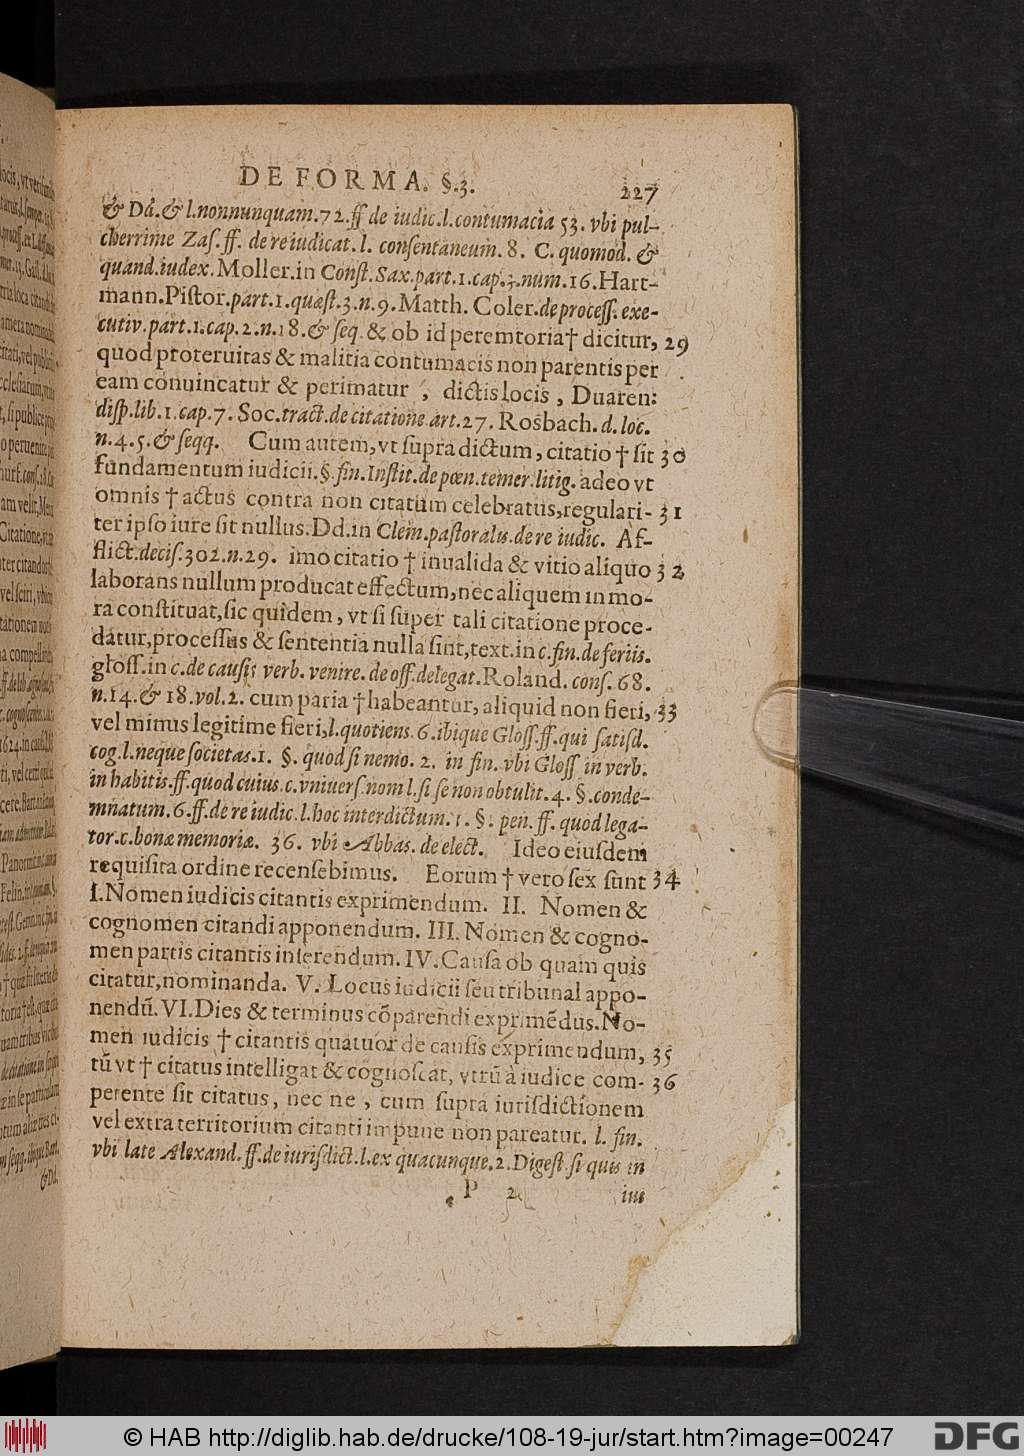 DE FORMA. §.3. 227
& Dd. & l. nonnunquam. 72. ff de iudic. l. contumacia 53. vbi pul-
cherrime Zas. ff. de re iudicat. l. consentaneum. 8. C. quomod. &
quand. iudex. Moller. in Const. Sax. part. 1. cap. 3. num. 16. Hart-
mann. Pistor. part. 1. quæst. 3. n. 9. Matth. Coler. de process. exe-
cutiv. part. 1. cap. 2. n. 18. & seq. & ob id peremtoria † dicitur, 29
quod proteruitas & malitia contumacis non parentis per
eam conuincatur & perimatur, dictis locis, Duaren:
disp. lib. 1. cap. 7. Soc. tract. de citatione art. 27. Rosbach. d. loc.
n. 4. 5. & seqq. Cum autem, vt supra dictum, citatio † sit 30
fundamentum iudicii. §. fin. Instit. de pœn. temer. litig. adeo vt
omnis † actus contra non citatum celebratus, regulari- 31
ter ipso iure sit nullus. Dd. in Clem. pastoralis. de re iudic. Af-
flict. decis. 302. n. 29. imo citatio † inualida & vitio aliquo 32
laborans nullum producat effectum, nec aliquem in mo-
ra constituat, sic quidem, vt si super tali citatione proce-
datur, processus & sententia nulla sint, text. in c. fin. de feriis.
gloss. in c. de causis verb. venire. de off. delegat. Roland. cons. 68.
n. 14. & 18. vol. 2. cum paria † habeantur, aliquid non fieri, 33
vel minus legitime fieri, l. quotiens. 6. ibique Gloss. ff. qui satisd.
cog. l. neque societas. 1. §. quod si nemo. 2. in fin. vbi Gloss in verb.
in habitis. ff. quod cuius. c. vniuers. nom l. si se non obtulit. 4. §. conde-
mnatum. 6. ff. de re iudic. l. hoc interdictum. 1. §. pen. ff. quod lega-
tor. c. bonæ memoriæ. 36. vbi Abbas. de elect. Ideo eiusdem
requisita ordine recensebimus. Eorum † vero sex sunt 34
I. Nomen iudicis citantis exprimendum. II. Nomen &
cognomen citandi apponendum. III. Nomen & cogno-
men partis citantis inserendum. IV. Causa ob quam quis
citatur, nominanda. V. Locus iudicii seu tribunal appo-
nendũ. VI. Dies & terminus cõparendi exprimẽdus. No-
men iudicis † citantis quatuor de causis exprimendum, 35
tũ vt † citatus intelligat & cognoscat, vtrũ à iudice com- 36
petente sit citatus, nec ne, cum supra iurisdictionem
vel extra territorium citanti impune non pareatur. l. fin.
vbi late Alexand. ff. de iurisdict. l. ex quacunque. 2. Digest. si quis in
P 2 ius
© HAB http://diglib.hab.de/drucke/108-19-jur/start.htm?image=00247
DFG